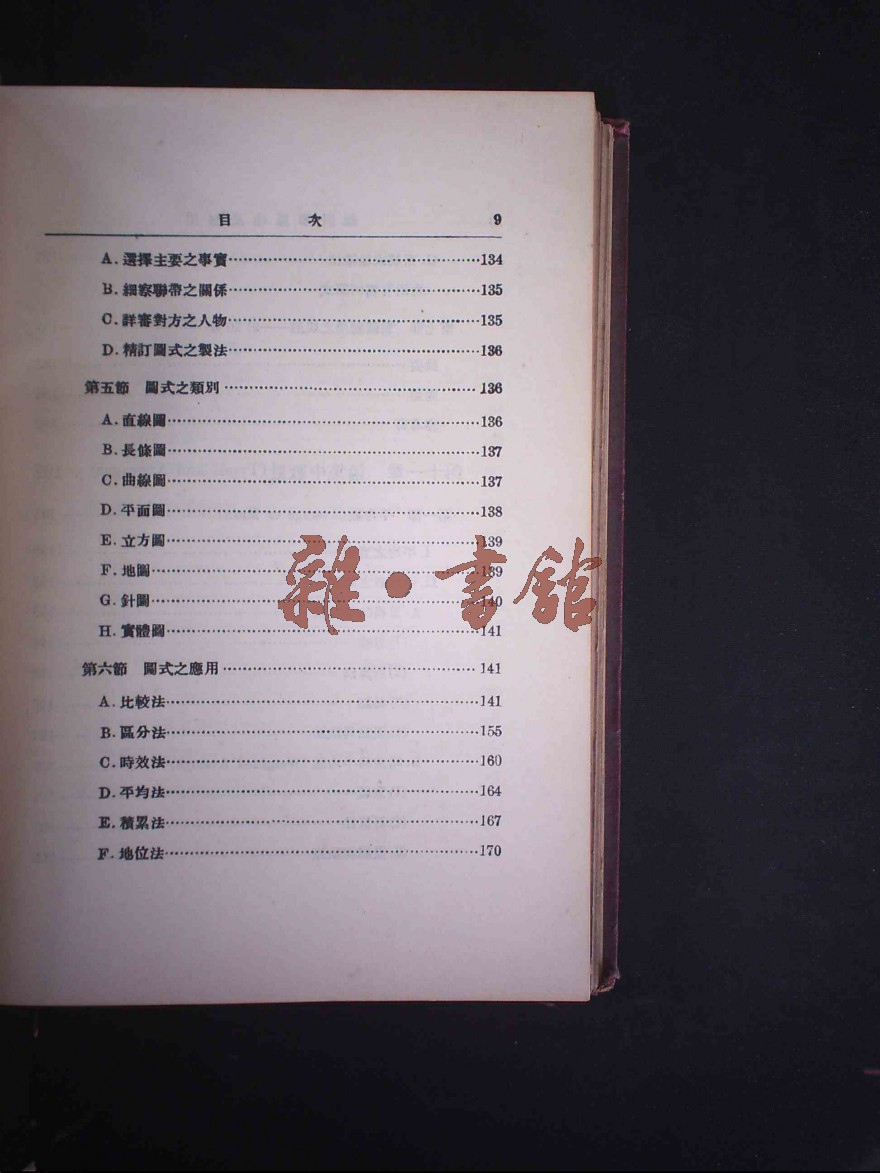 目 次 9
A.選擇主要之事實…………134
B.細察聯帶之關係…………135
C.詳審對方之人物…………135
D.精訂圖式之製法…………136
第五節 圖式之類別…………136
A.直線圖…………136
B.長條圖…………137
C.曲線圖…………137
D.平面圖…………138
E.立方圖…………139
F.地圖…………139
G.針圖…………140
H.實體圖…………141
雜·書館
第六節 圖式之應用…………141
A.比較法…………141
B.區分法…………155
C.時效法…………160
D.平均法…………164
E.積累法…………167
F.地位法…………170